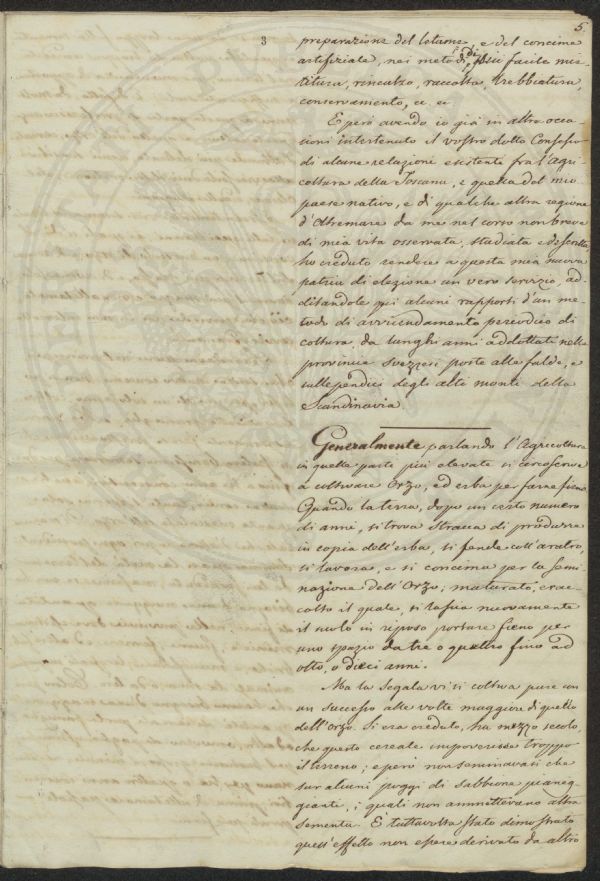 5
3
preparazione del letame, e del concime
artifiziale, nei metodi di più facile mie-
titura, rincalzo, raccolta, trebbiatura,
conservamento, ec ec
E però avendo io già in altre occa-
sioni intertenuto il vostro dotto Consesso
di alcune relazioni esistenti fra l'Agri-
coltura della Toscana, e quella del mio
paese nativo, e di qualche altra regione
d'Oltremare da me nel corso non breve
di mia vita osservata, studiata e descritta,
ho creduto rendere a questa mia nuova
patria di elezione un vero servizio, ad-
ditandole qui alcuni rapporti d'un me-
todo di avvicendamento periodico di
coltura, da lunghi anni addottati nelle
provincie svezzesi poste alle falde, e
sulle pendici degli alti monti della
Scandinavia.
Generalmente parlando l'Agricoltura
in quelle parti più elevate si circoscrive
a coltivare Orzo, ed erba per farne fieno
Quando la terra, dopo un certo numero
di anni, si trova stracca di produrre
in copia dell'erba, si fende coll'aratro,
si lavora, e si concima per la semi-
nazione dell'Orzo; maturato, e rac-
colto il quale, si lascia nuovamente
il suolo in riposo portare fieno per
uno spazio da tre o quattro fino ad
otto, o dieci anni.
Ma la Segala vi si coltiva pure con
un successo alle volte maggiore di quello
dell'orzo. Si era creduto, ha mezzo secolo,
che questo cereale impoverisse troppo
il terreno; e però non seminavasi che
sur alcuni poggi di sabbione pianeg-
gianti, i quali non ammettevano altra
sementa. È tuttavolta stato dimostrato
quest'effetto non essere derivato da altro